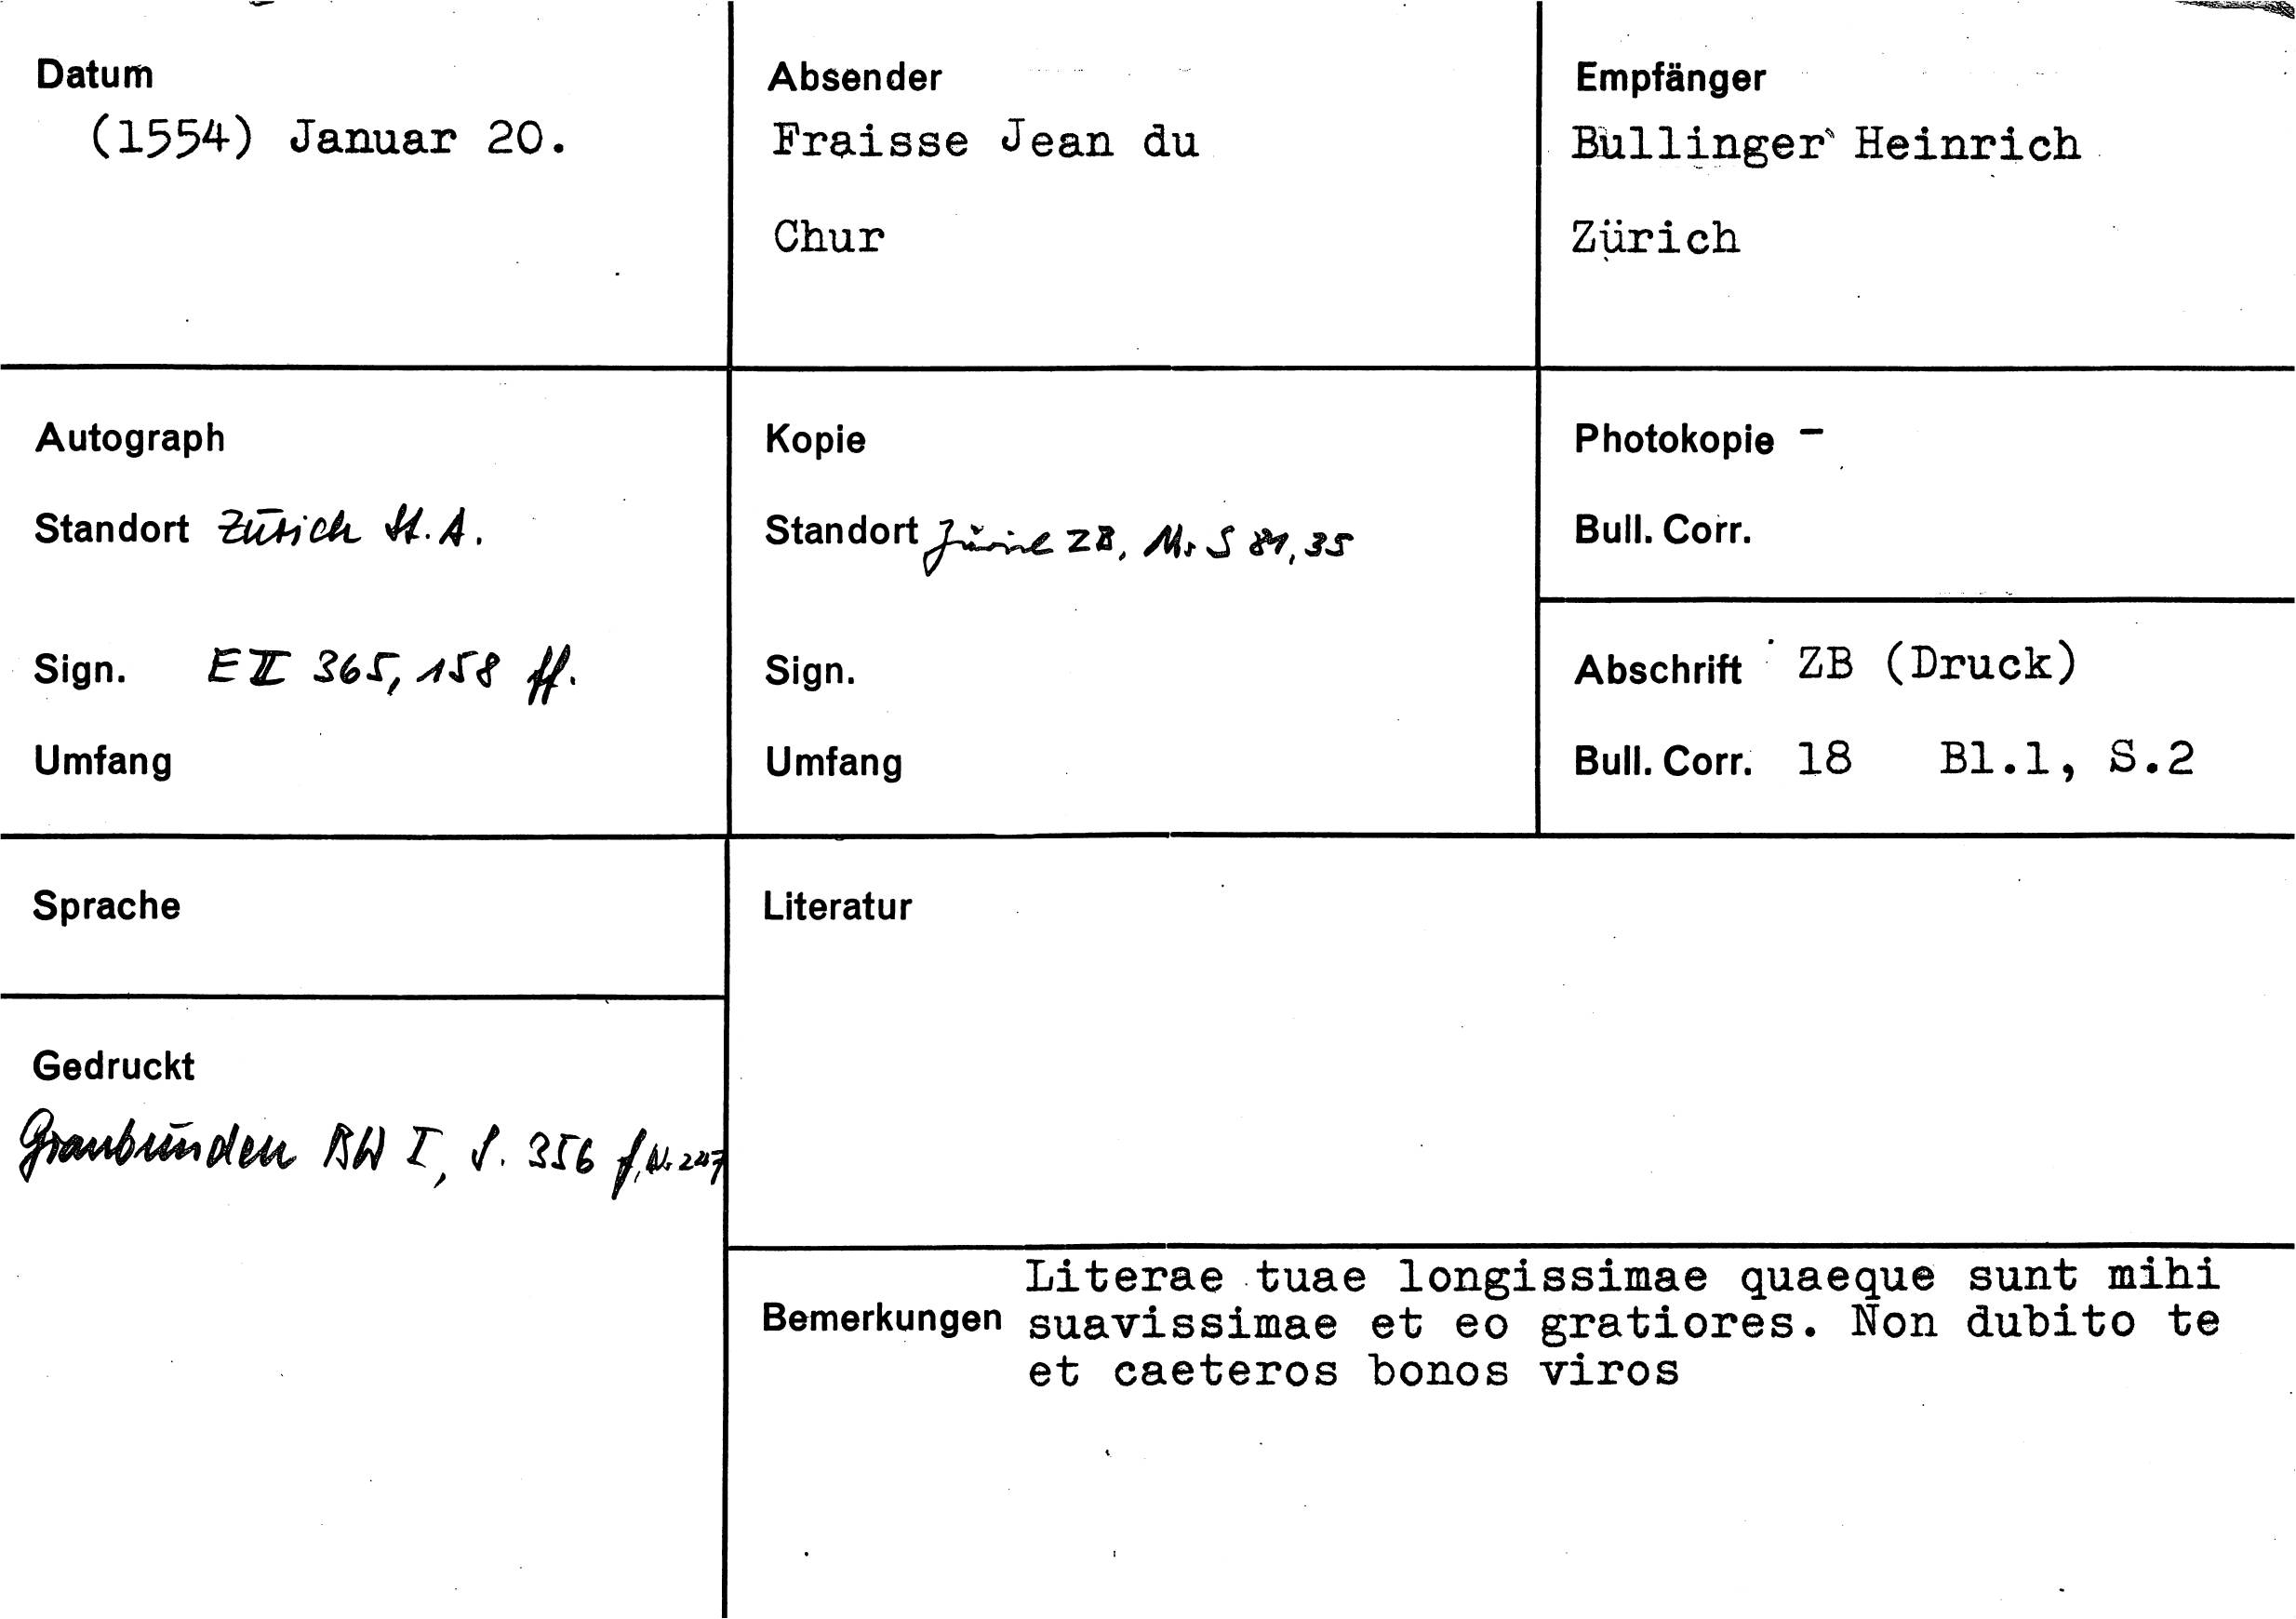 Datum
(1554) Januar 20.
Absender
Fraisse Jean du
Chur
Empfänger
Bullinger Heinrich
Zürich
Autograph
Standort Zürich St. A.
Sign. E II 365, 158 ff.
Umfang
Kopie
Standort Zürich ZB, Ms S 81, 35
Sign.
Umfang
Photokopie -
Bull. Corr.
Abschrift ZB (Druck)
Bull. Corr. 18 Bl.1, S.2
Sprache
Gedruckt
Graubünden BW I, S. 356 f, Nr 247
Literatur
Bemerkungen
Literae tuae longissimae quaeque sunt mihi
suavissimae et eo gratiores. Non dubito te
et caeteros bonos viros